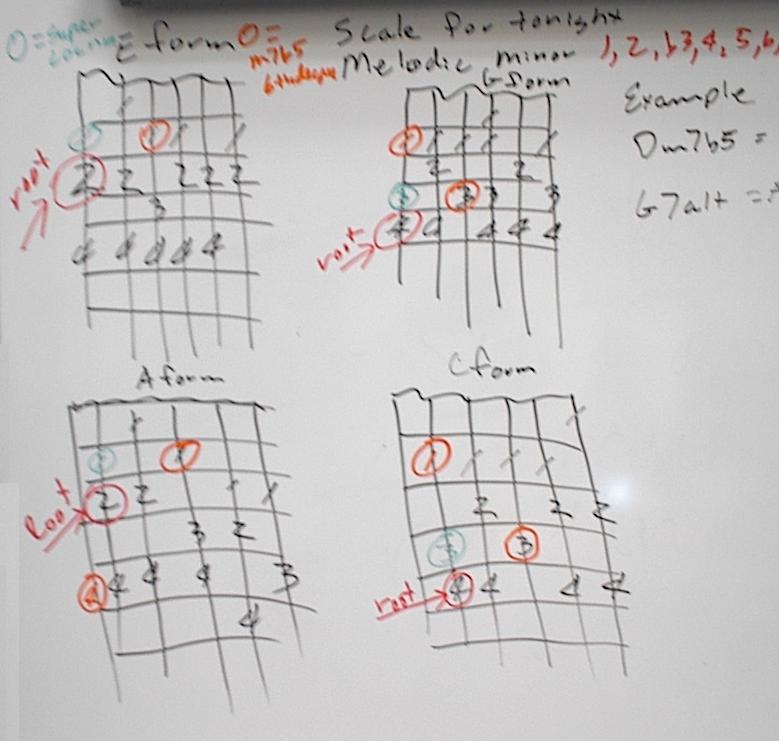 O = super locrian E form O = m7b5 6th degree Scale for tonight
Melodic minor 1, 2, b3, 4, 5, 6,
G form
Example
Dm7b5 =
G7alt =
root
1 1
1 1 1 1
2 2 2 2 2
3
4 4 4 4 4
root
1
1 1 1 1
2 2
3 3 3 3
4 4 4 4 4
A form
C form
Root
1
1 1
2 2 1 1
3 2
4 4 4 4 3
4
root
1
1 1 1 1
2 2 2
3 3
4 4 4 4